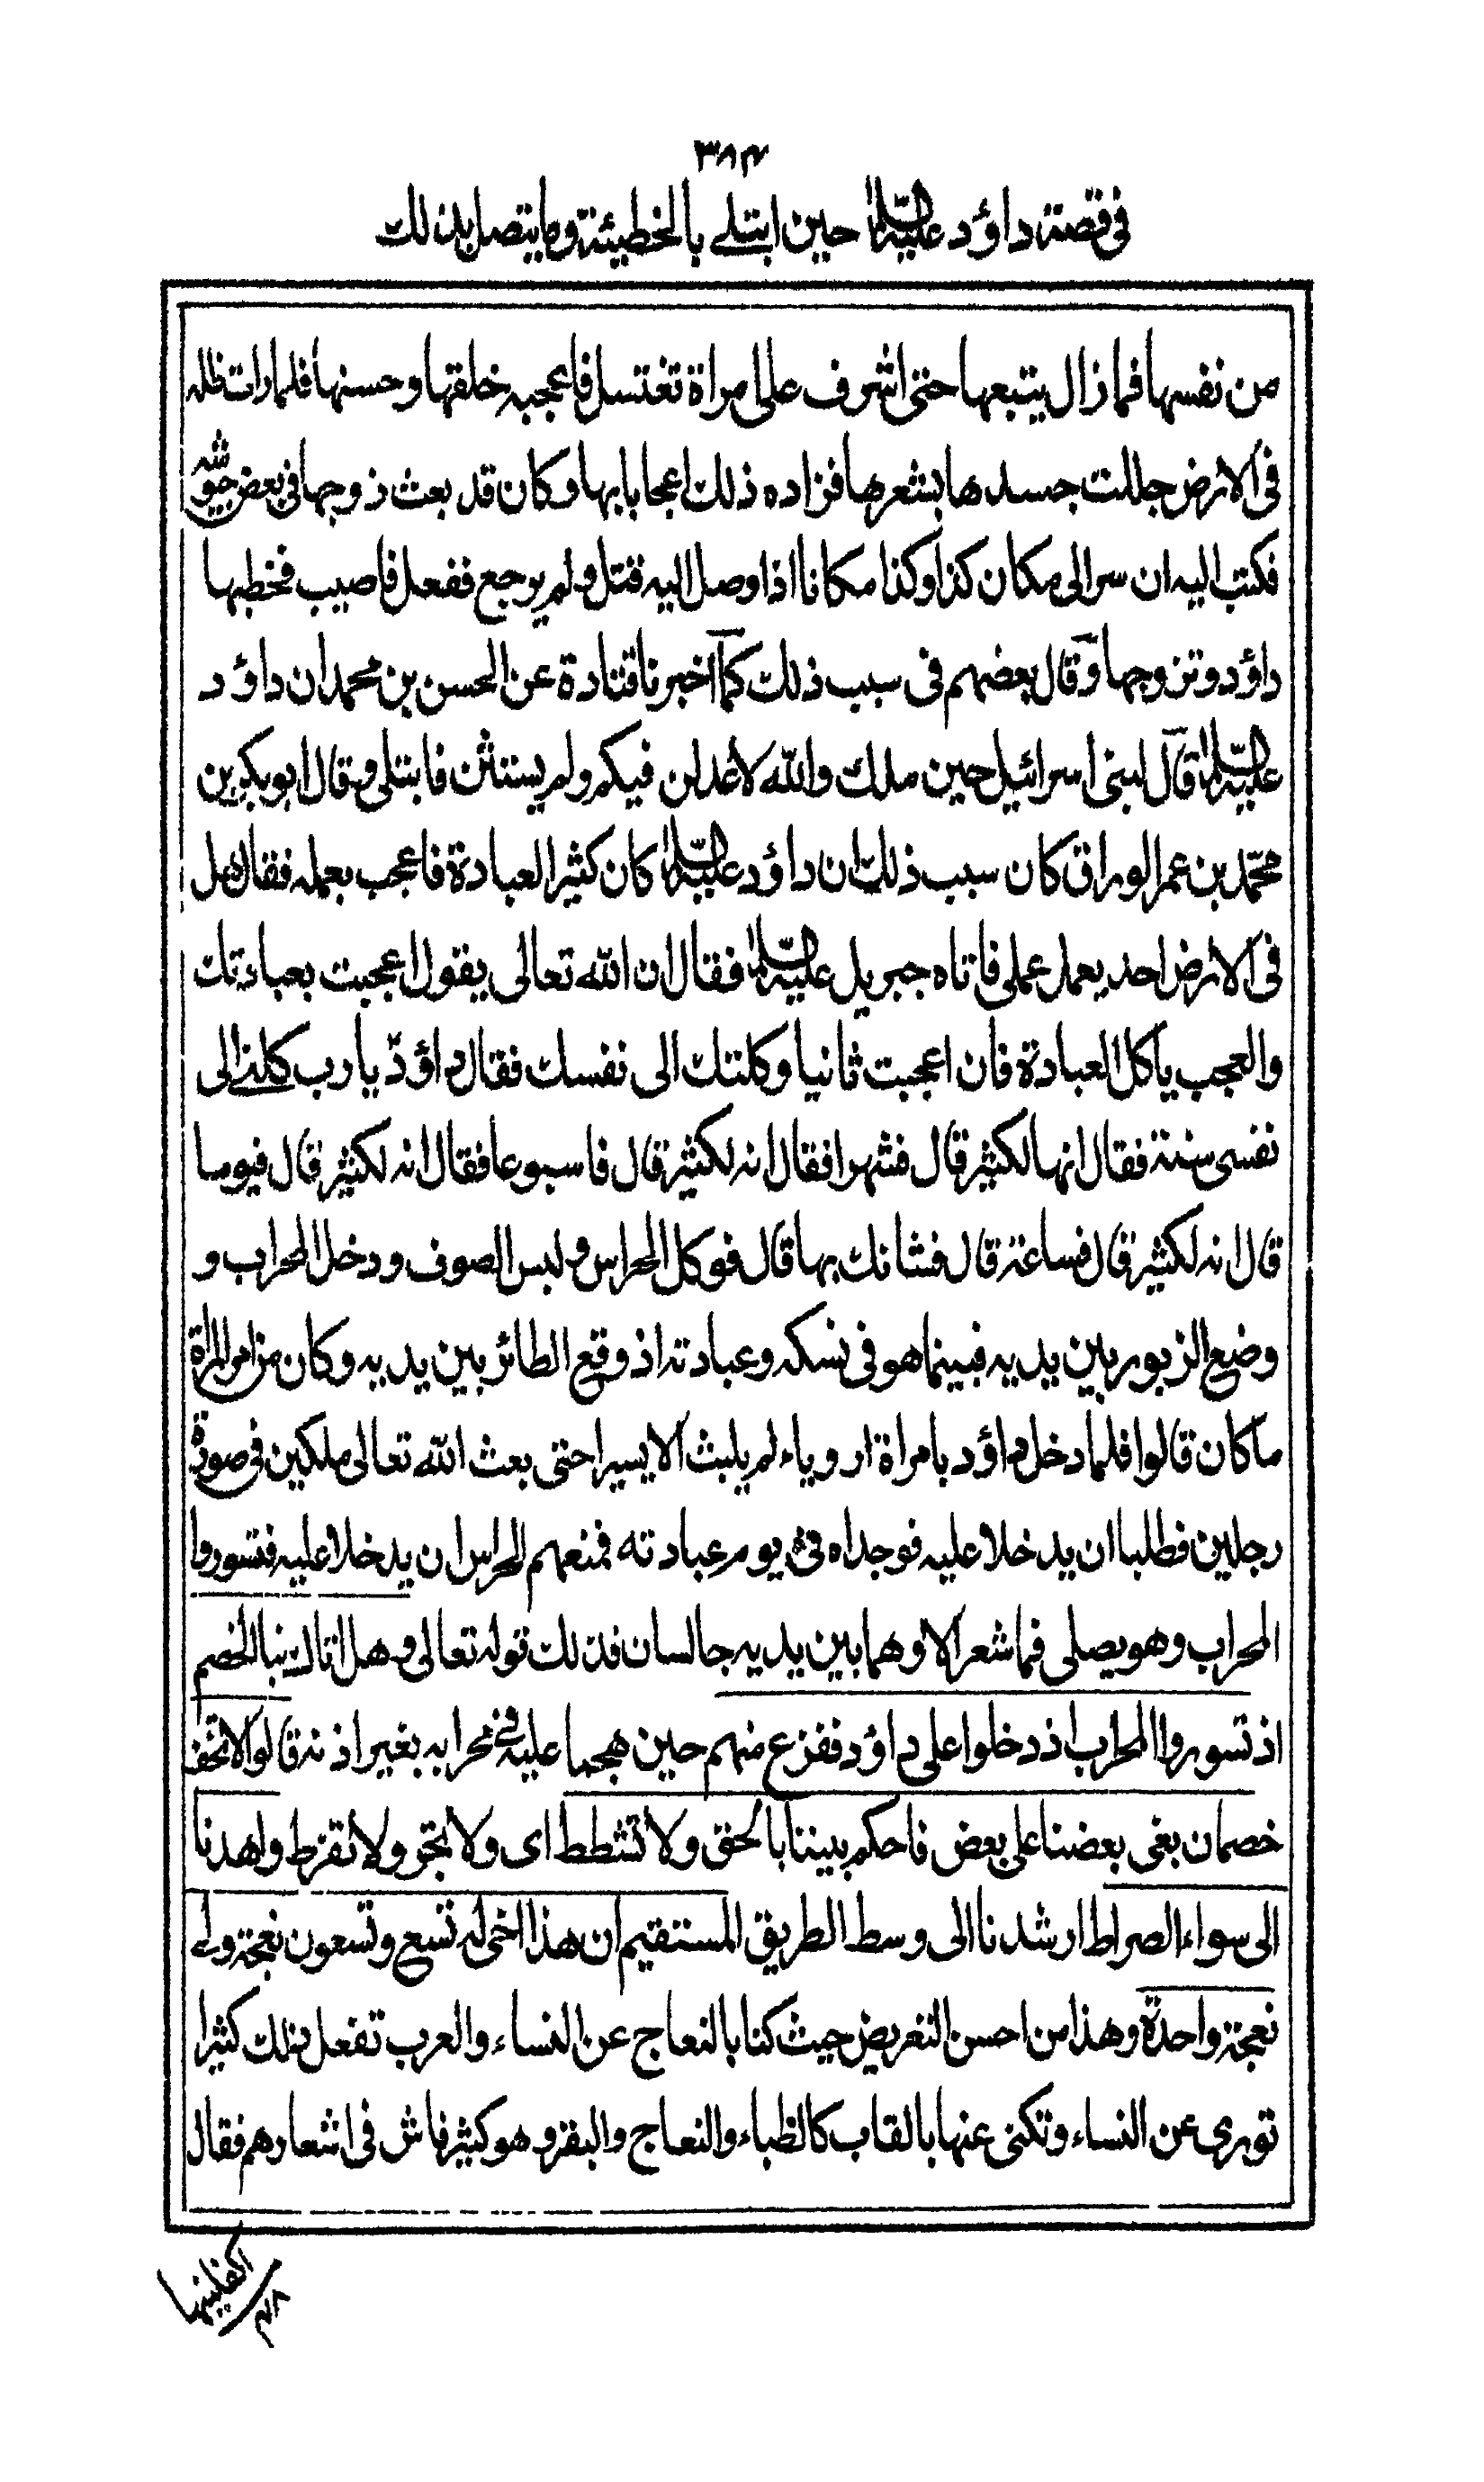 ٣٨٤
فى قصة داؤد عليه السلام حين ابتلے بالخطيئة وما يتصل بذلك
من نفسها فما زال يتبعها حتى اشرف على امراة تغتسل فاعجبه خلقها وحسنها فلما رات ظله
فى الارض جللت جسدها بشعرها فزاده ذلك اعجابا بها وكان قد بعث زوجها فى بعض جيوشه
فكتب اليه ان سر الى مكان كذا وكذا مكانا اذا وصل اليه قتل ولم يرجع ففعل فاصيب فخطبها
داؤد وتزوجها وقال بعضهم فى سبب ذلك كما اخبرنا قتادة عن الحسن بن محمد ان داؤد
عليه السلام قال لبنى اسرائيل حين ملك والله لاعدلن فيكم ولم يستثن فابتلى وقال ابو بكر بن
محمد بن عمر الوراق كان سبب ذلك ان داؤد عليه السلام كان كثير العبادة فاعجب بعمله فقال هل
فى الارض احد يعمل عملى فاتاه جبريل عليه السلام فقال ان الله تعالى يقول اعجبت بعبادتك
والعجب ياكل العبادة فان اعجبت ثانيا وكلتك الى نفسك فقال داؤد يا رب كلنے الى
نفسى سنة فقال انها لكثير قال فشهرا فقال انه لكثير قال فاسبوعا فقال انه لكثير قال فيوما
قال انه لكثير قال فساعة قال فشانك بها قال فوكل الحراس ولبس الصوف ودخل المحراب و
وضع الزبور بين يديه فبينما هو فى نسكه وعبادته اذ وقع الطائر بين يديه وكان من امر المراة
ما كان قالوا فلما دخل داؤد بامراة اروياء لم يلبث الا يسيرا حتى بعث الله تعالى ملكين فى صورة
رجلين فطلبا ان يدخلا عليه فوجداه فى يوم عبادته فمنعهم الحراس ان يدخلا عليه فتسوروا
المحراب وهو يصلى فما شعر الا وهما بين يديه جالسان فذلك قوله تعالى وهل اتاك نبا الخصم
اذ تسوروا المحراب اذ دخلوا على داؤد ففزع منهم حين هجما عليه فى محرابه بغير اذنه قالوا لا تخف
خصمان بغى بعضنا على بعض فاحكم بيننا بالحق ولا تشطط اى ولا تجر ولا تفرط واهدنا
الى سواء الصراط ارشدنا الى وسط الطريق المستقيم ان هذا اخى له تسع وتسعون نعجة ولے
نعجة واحدة وهذا من احسن التعريض حيث كنا بالنعاج عن النساء والعرب تفعل ذلك كثيرا
تورى عن النساء وتكنى عنها بالقاب كالظباء والنعاج والبقر وهو كثير فاش فى اشعارهم فقال
اكفلنيها